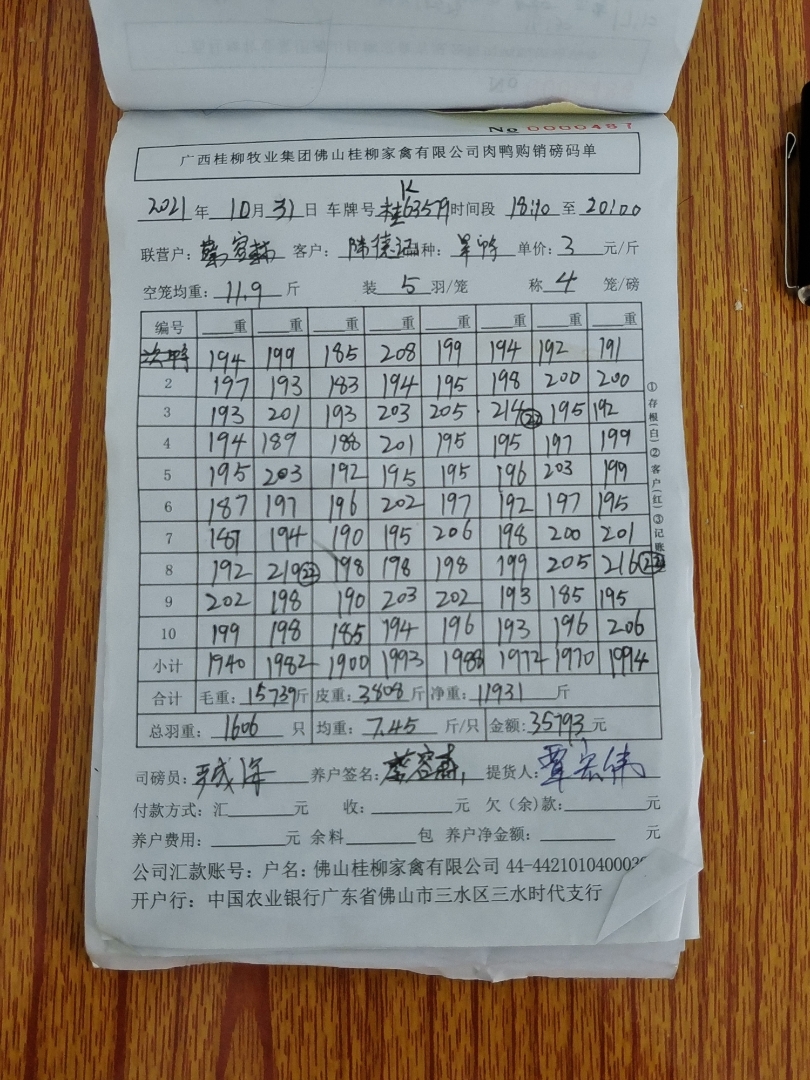 No 0000487
广西桂柳牧业集团佛山桂柳家禽有限公司肉鸭购销磅码单
2021 年 10 月 31 日 车牌号 桂K63579 时间段 18:10 至 20:00
联营户： 客户： 种： 单价：3 元/斤
空笼均重：11.9 斤 装 5 羽/笼 称 4 笼/磅
编号 重 重 重 重 重 重 重 重
194 199 185 208 199 194 192 191
2 197 193 183 194 195 198 200 200
3 193 201 193 203 205 214 195 192
4 194 189 188 201 195 195 197 199
5 195 203 192 195 195 196 203 199
6 187 197 196 202 197 192 197 195
7 187 194 190 195 206 198 200 201
8 192 210 198 198 198 199 205 216
9 202 198 190 203 202 193 185 195
10 199 198 185 194 196 193 196 206
小计 1940 1982 1900 1993 1988 1972 1970 1994
合计 毛重：15739 斤 皮重：3808 斤 净重：11931 斤
总羽重：1606 只 均重：7.45 斤/只 金额：35793 元
司磅员： 养户签名： 提货人：覃宏伟
付款方式：汇 元 收： 元 欠（余）款： 元
养户费用： 元 余料 包 养户净金额： 元
公司汇款账号：户名：佛山桂柳家禽有限公司 44-4421010400
开户行：中国农业银行广东省佛山市三水区三水时代支行
①存根(白)②客户(红)③记账